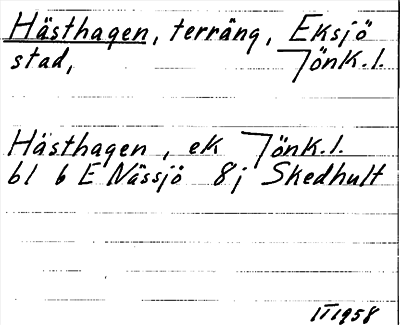 Hästhagen, terräng, Eksjö
stad, Jönk.l.
Hästhagen, ek Jönk.l.
bl 6 E Nässjö 8j Skedhult
II 1958